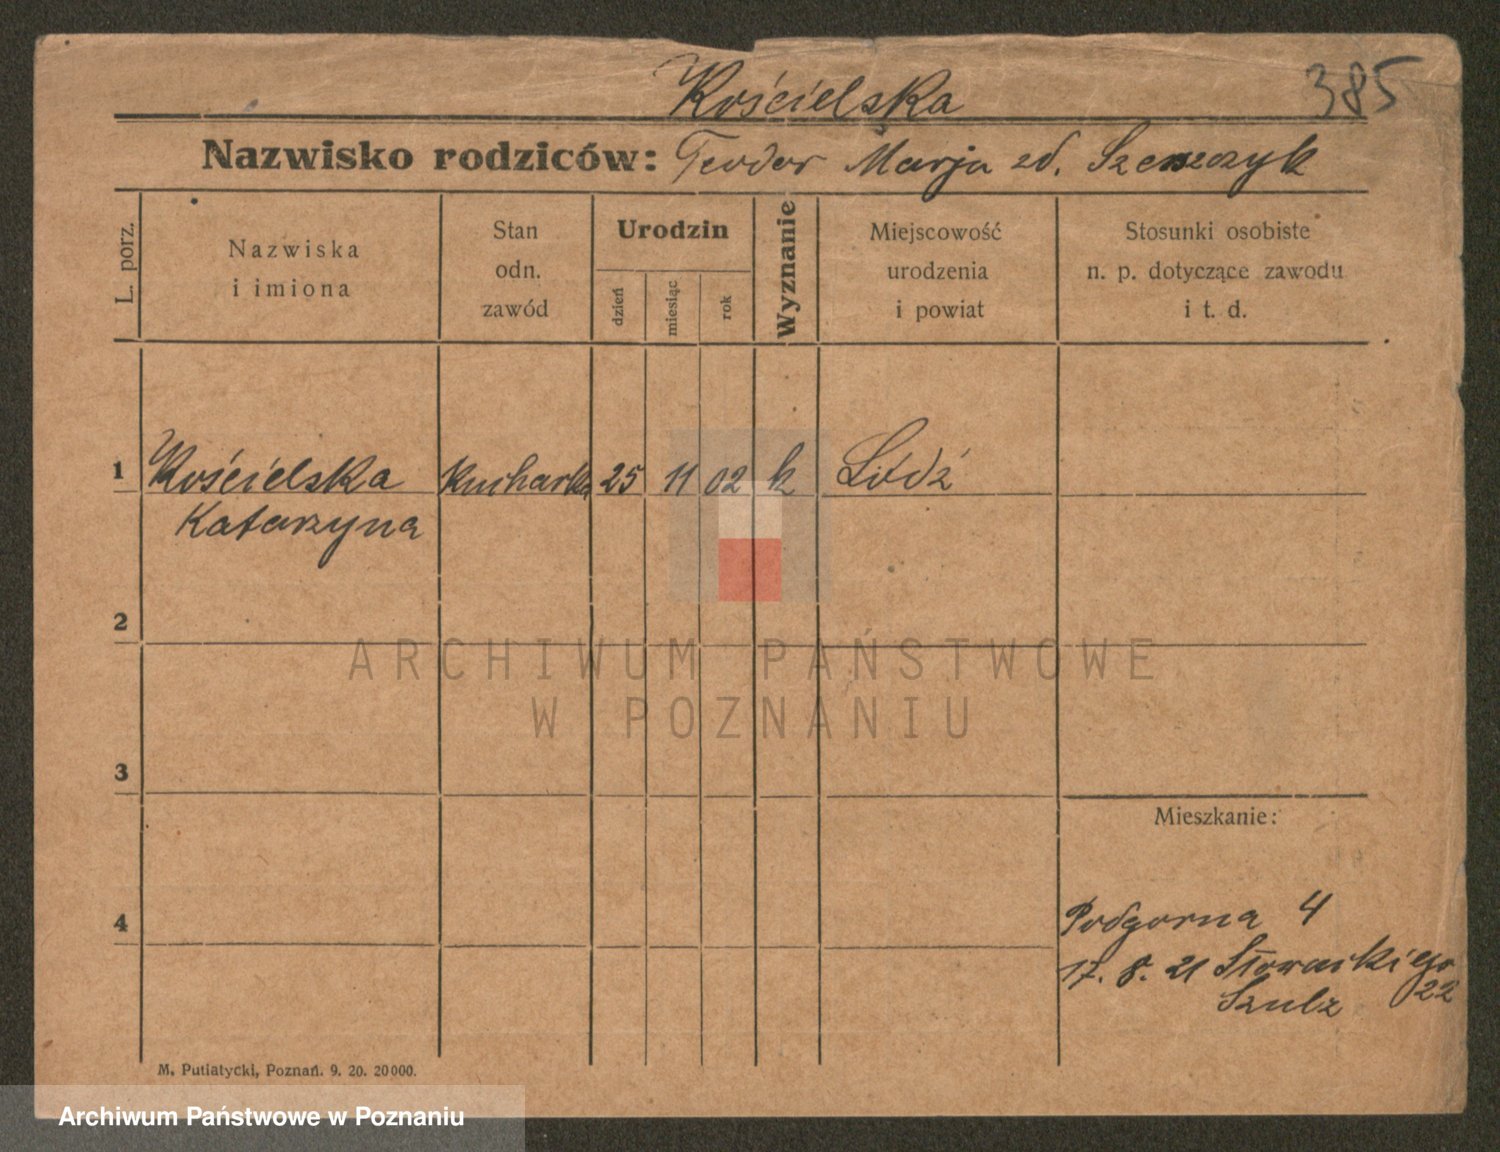 Kościelska 385
Nazwisko rodziców: Teodor Marja zd.
L. porz.
Nazwiska
i imiona
Stan
odn.
zawód
Urodzin
dzień
miesiąc
rok
Wyznanie
Miejscowość
urodzenia
i powiat
Stosunki osobiste
n. p. dotyczące zawodu
i t. d.
1 Kościelska kucharka 25 11 02 k Łódź
Katarzyna
2
ARCHIWUM PAŃSTWOWE
W POZNANIU
3
Mieszkanie:
4 Podgorna 4
17. 8. 21 Słowackiego
Szulz 22
M. Putiatycki, Poznań. 9. 20. 20000.
Archiwum Państwowe w Poznaniu